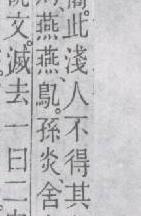 此淺人不得其
燕燕、鳦。孫炎、舍
文。滅去一曰二